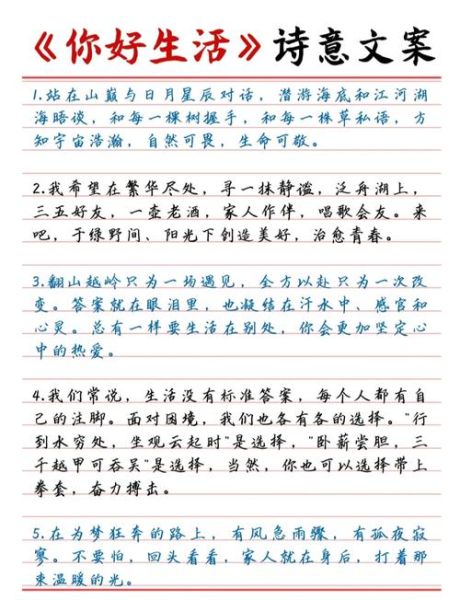 《你好生活》诗意文案
1.站在山巅与日月星辰对话，潜游海底和江河湖
海晤谈，和每一棵树握手，和每一株草私语，方
知宇宙浩瀚，自然可畏，生命可敬。
2.我希望在繁华尽处，寻一抹静谧，泛舟湖上，
三五好友，一壶老酒，家人作伴，唱歌会友。来
吧，于绿野间、阳光下创造美好，治愈青春。
3.翻山越岭只为一场遇见，全力以赴只为一次改
变。答案就在眼泪里，也凝结在汗水中、感官和
心灵。总有一样要生活在别处，你会更加坚定心
中的热爱。
4.我们常说，生活没有标准答案，每个人都有自
己的注脚。面对困境，我们也各有各的选择。"行
到水穷处，坐观云起时"是选择，"卧薪尝胆，三
千越甲可吞吴"是选择，当然，你也可以选择带上
拳套，奋力搏击。
5.在为梦狂奔的路上，有风急雨骤，有孤夜寂
寥。不要怕，回头看看，家人就在身后，打着那
束温暖的光。